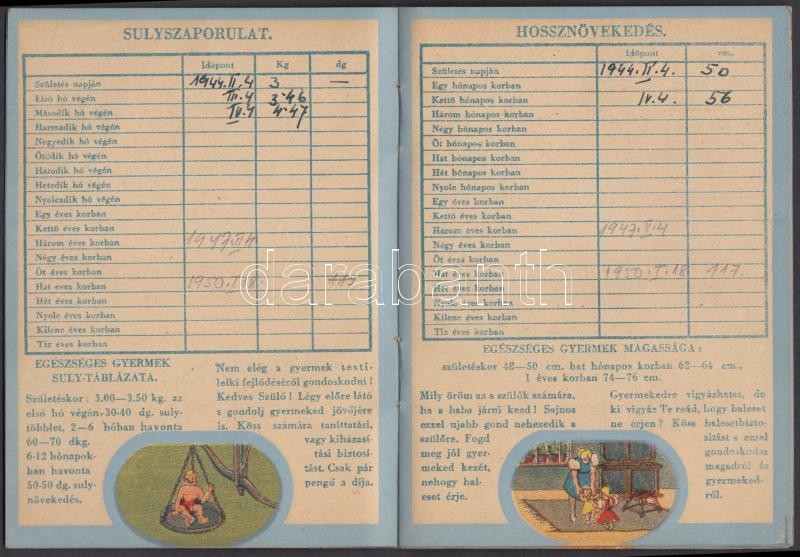 SULYSZAPORULAT.
Időpont Kg dg
Születés napján 1944.II.4 3 —
Első hó végén III.4 3·46
Második hó végén IV.4 4·47
Harmadik hó végén
Negyedik hó végén
Ötödik hó végén
Hatodik hó végén
Hetedik hó végén
Nyolcadik hó végén
Egy éves korban
Kettő éves korban
Három éves korban 1947.II.4
Négy éves korban
Öt éves korban
Hat éves korban 1950.I.18.
Hét éves korban
Nyolc éves korban
Kilenc éves korban
Tiz éves korban
EGÉSZSÉGES GYERMEK
SULY-TÁBLÁZATA.
Születéskor: 3.00—3.50 kg. az
első hó végén-30-40 dg. suly-
többlet, 2—6 hóban havonta
60—70 dkg.
6-12 hónapok-
ban havonta
50-50 dg. suly-
növekedés.
Nem elég a gyermek testi-
lelki fejlődéséről gondoskodni!
Kedves Szülő! Légy előre látó
s gondolj gyermeked jövőjére
is. Köss számára taníttatási,
vagy kiházasí-
tási biztosí-
tást. Csak pár
pengő a díja.
HOSSZNÖVEKEDÉS.
Időpont cm.
Születés napján 1944.II.4. 50
Egy hónapos korban
Kettő hónapos korban IV.4. 56
Három hónapos korban
Négy hónapos korban
Öt hónapos korban
Hat hónapos korban
Hét hónapos korban
Nyolc hónapos korban
Egy éves korban
Kettő éves korban
Három éves korban 1947.II.4
Négy éves korban
Öt éves korban
Hat éves korban 1950.I.18 117.
Hét éves korban
Nyolc éves korban
Kilenc éves korban
Tiz éves korban
EGÉSZSÉGES GYERMEK MAGASSÁGA:
születéskor 48—50 cm. hat hónapos korban 62—64 cm.,
1 éves korban 74—76 cm.
Mily öröm az a szülők számára,
ha a baba járni kezd! Sajnos
ezzel ujabb gond nehezedik a
szülőre, Fogd
meg jól gyer-
meked kezét,
nehogy bal-
eset érje.
Gyermekedre vigyázhatsz, de
ki vigyáz Te reád, hogy baleset
ne érjen? Köss balesetbizto-
sitást s ezzel
gondoskodás
magadról és
gyermeked-
ről.
darabanth